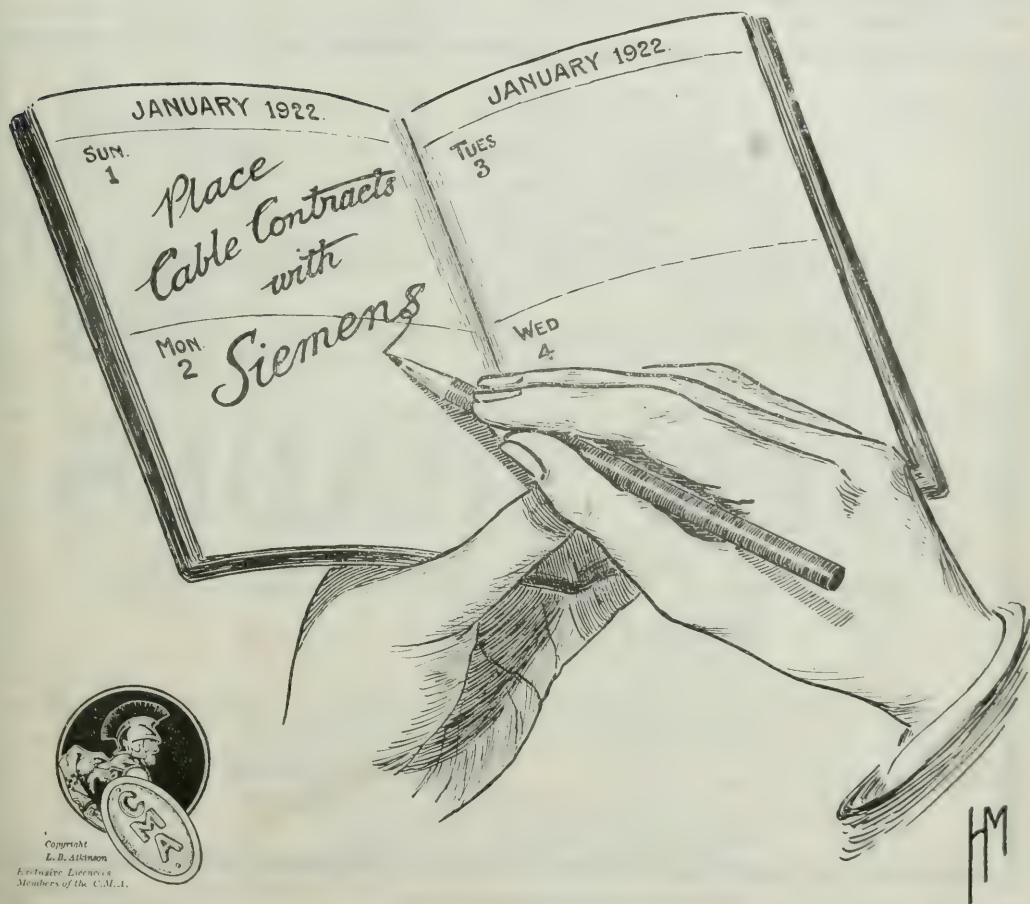 JANUARY 1922.
SUN.
1
Place
Cable Contracts
with
Siemens
MON.
2
JANUARY 1922.
TUES
3
WED
4
C.M.A.
Copyright
L. B. Atkinson
Exclusive Licencees
Members of the C.M.A.
HM